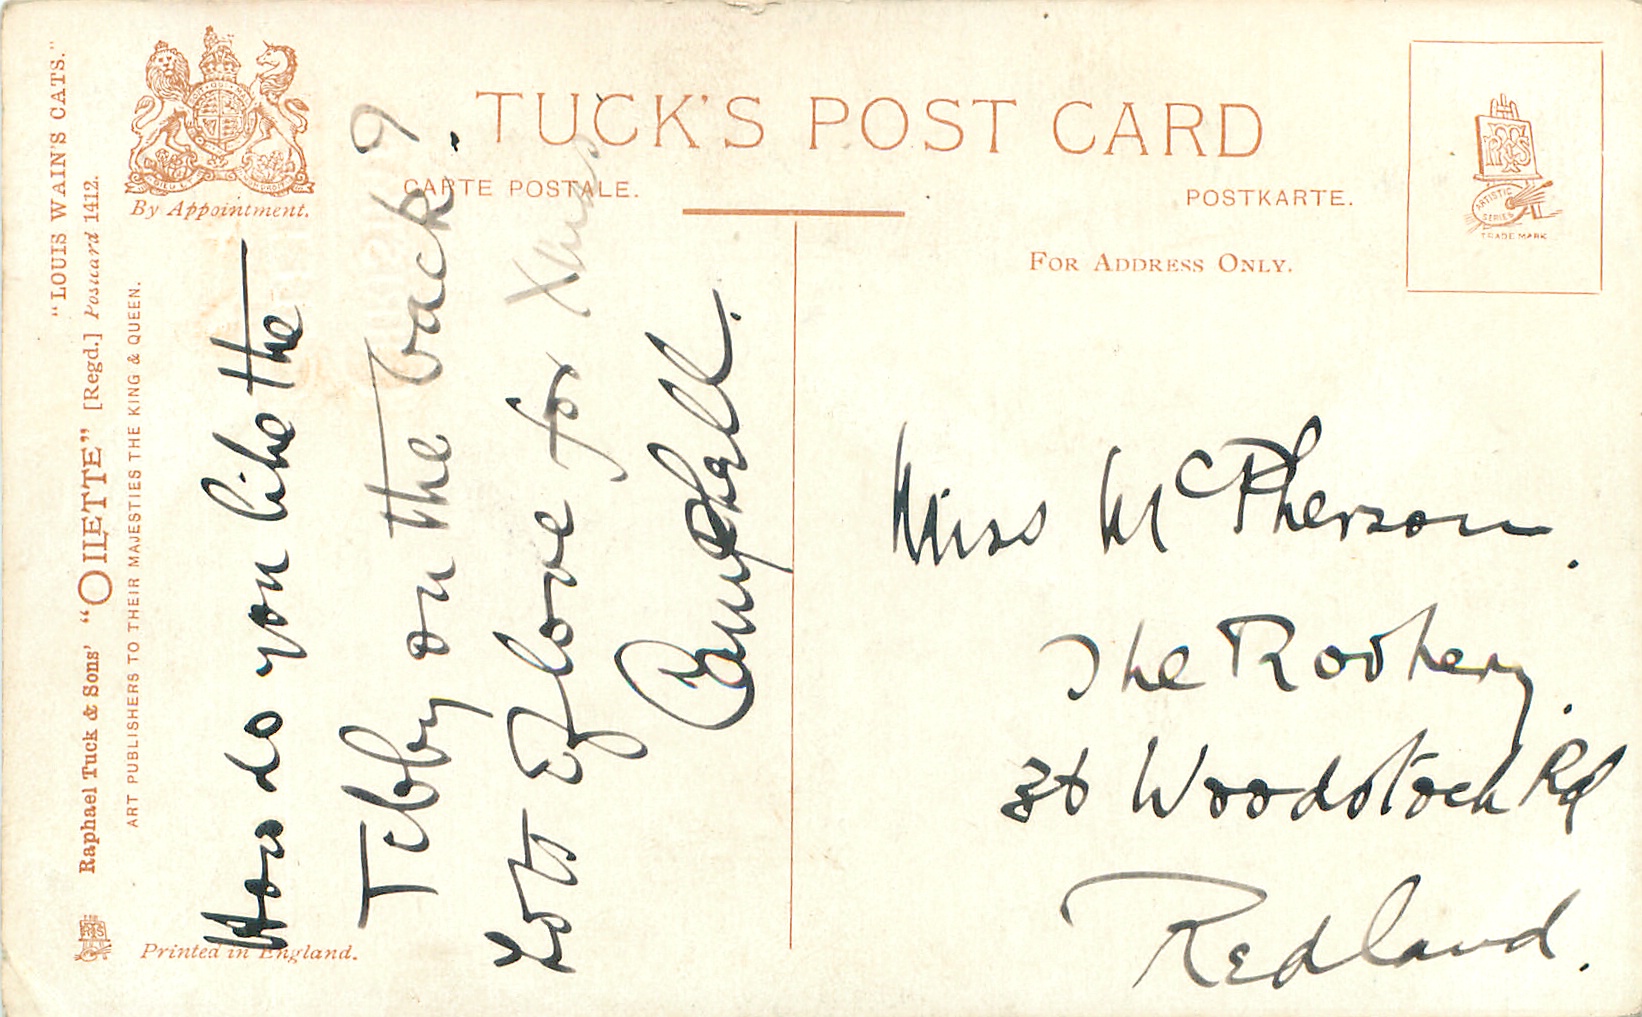 "LOUIS WAIN'S CATS."
Raphael Tuck & Sons' "OILETTE" [Regd.] Postcard 1412.
ART PUBLISHERS TO THEIR MAJESTIES THE KING & QUEEN.
By Appointment.
Printed in England.
TUCK'S POST CARD
CARTE POSTALE.
POSTKARTE.
FOR ADDRESS ONLY.
ARTISTIC
SERIES
TRADE MARK
How do you like the
Tibby on the back?
Lots of love for Xmas
Campbell.
Miss McPherson.
The Rookery.
36 Woodstock Rd
Redland.